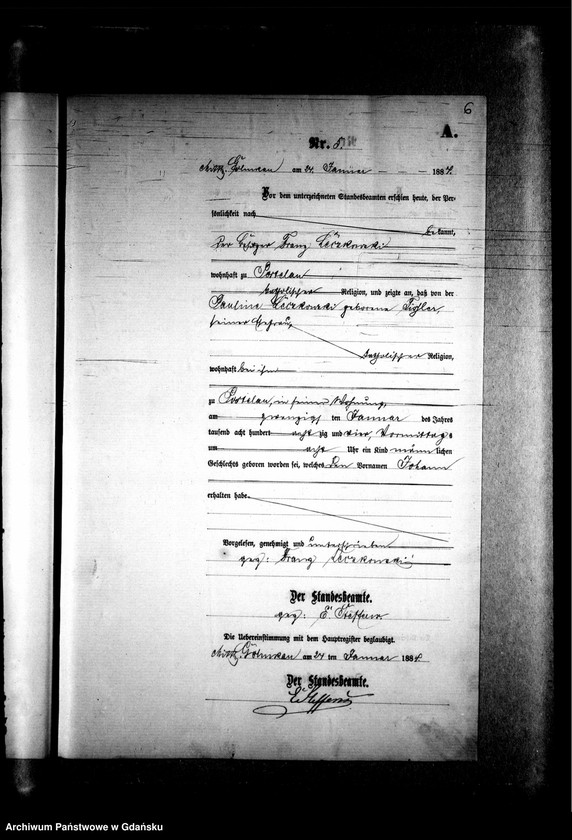 6
A.
Nr. 5.
Golmkau am 24. Januar 1884.
Vor dem unterzeichneten Standesbeamten erschien heute, der Per-
sönlichkeit nach
bekannt,
der Franz Leczkowski
wohnhaft zu Postelau
katholischer Religion, und zeigte an, daß von der
Pauline Leczkowski geborene
seiner Ehefrau,
katholischer Religion,
wohnhaft bei ihm
zu Postelau, in seiner Wohnung,
am zwanzigs ten Januar des Jahres
tausend acht hundert acht zig und vier, Vormittags
um acht Uhr ein Kind männ lichen
Geschlechts geboren worden sei, welches den Vornamen Johann
erhalten habe.
Vorgelesen, genehmigt und unterschrieben
gez: Franz Leczkowski
Der Standesbeamte.
gez: E. Steffens.
Die Uebereinstimmung mit dem Hauptregister beglaubigt.
Golmkau am 24 ten Januar 1884.
Der Standesbeamte.
E Steffens
Archiwum Państwowe w Gdańsku